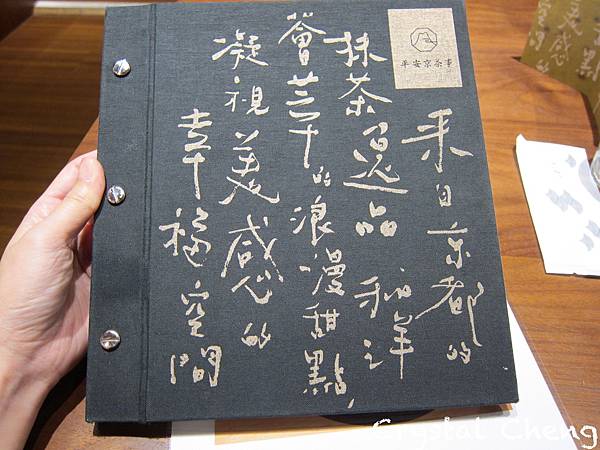 平安京茶事
来自京都的
抹茶逸品 和洋
薈萃的浪漫甜點,
凝視美感的
幸福空間
Crystal Cheng